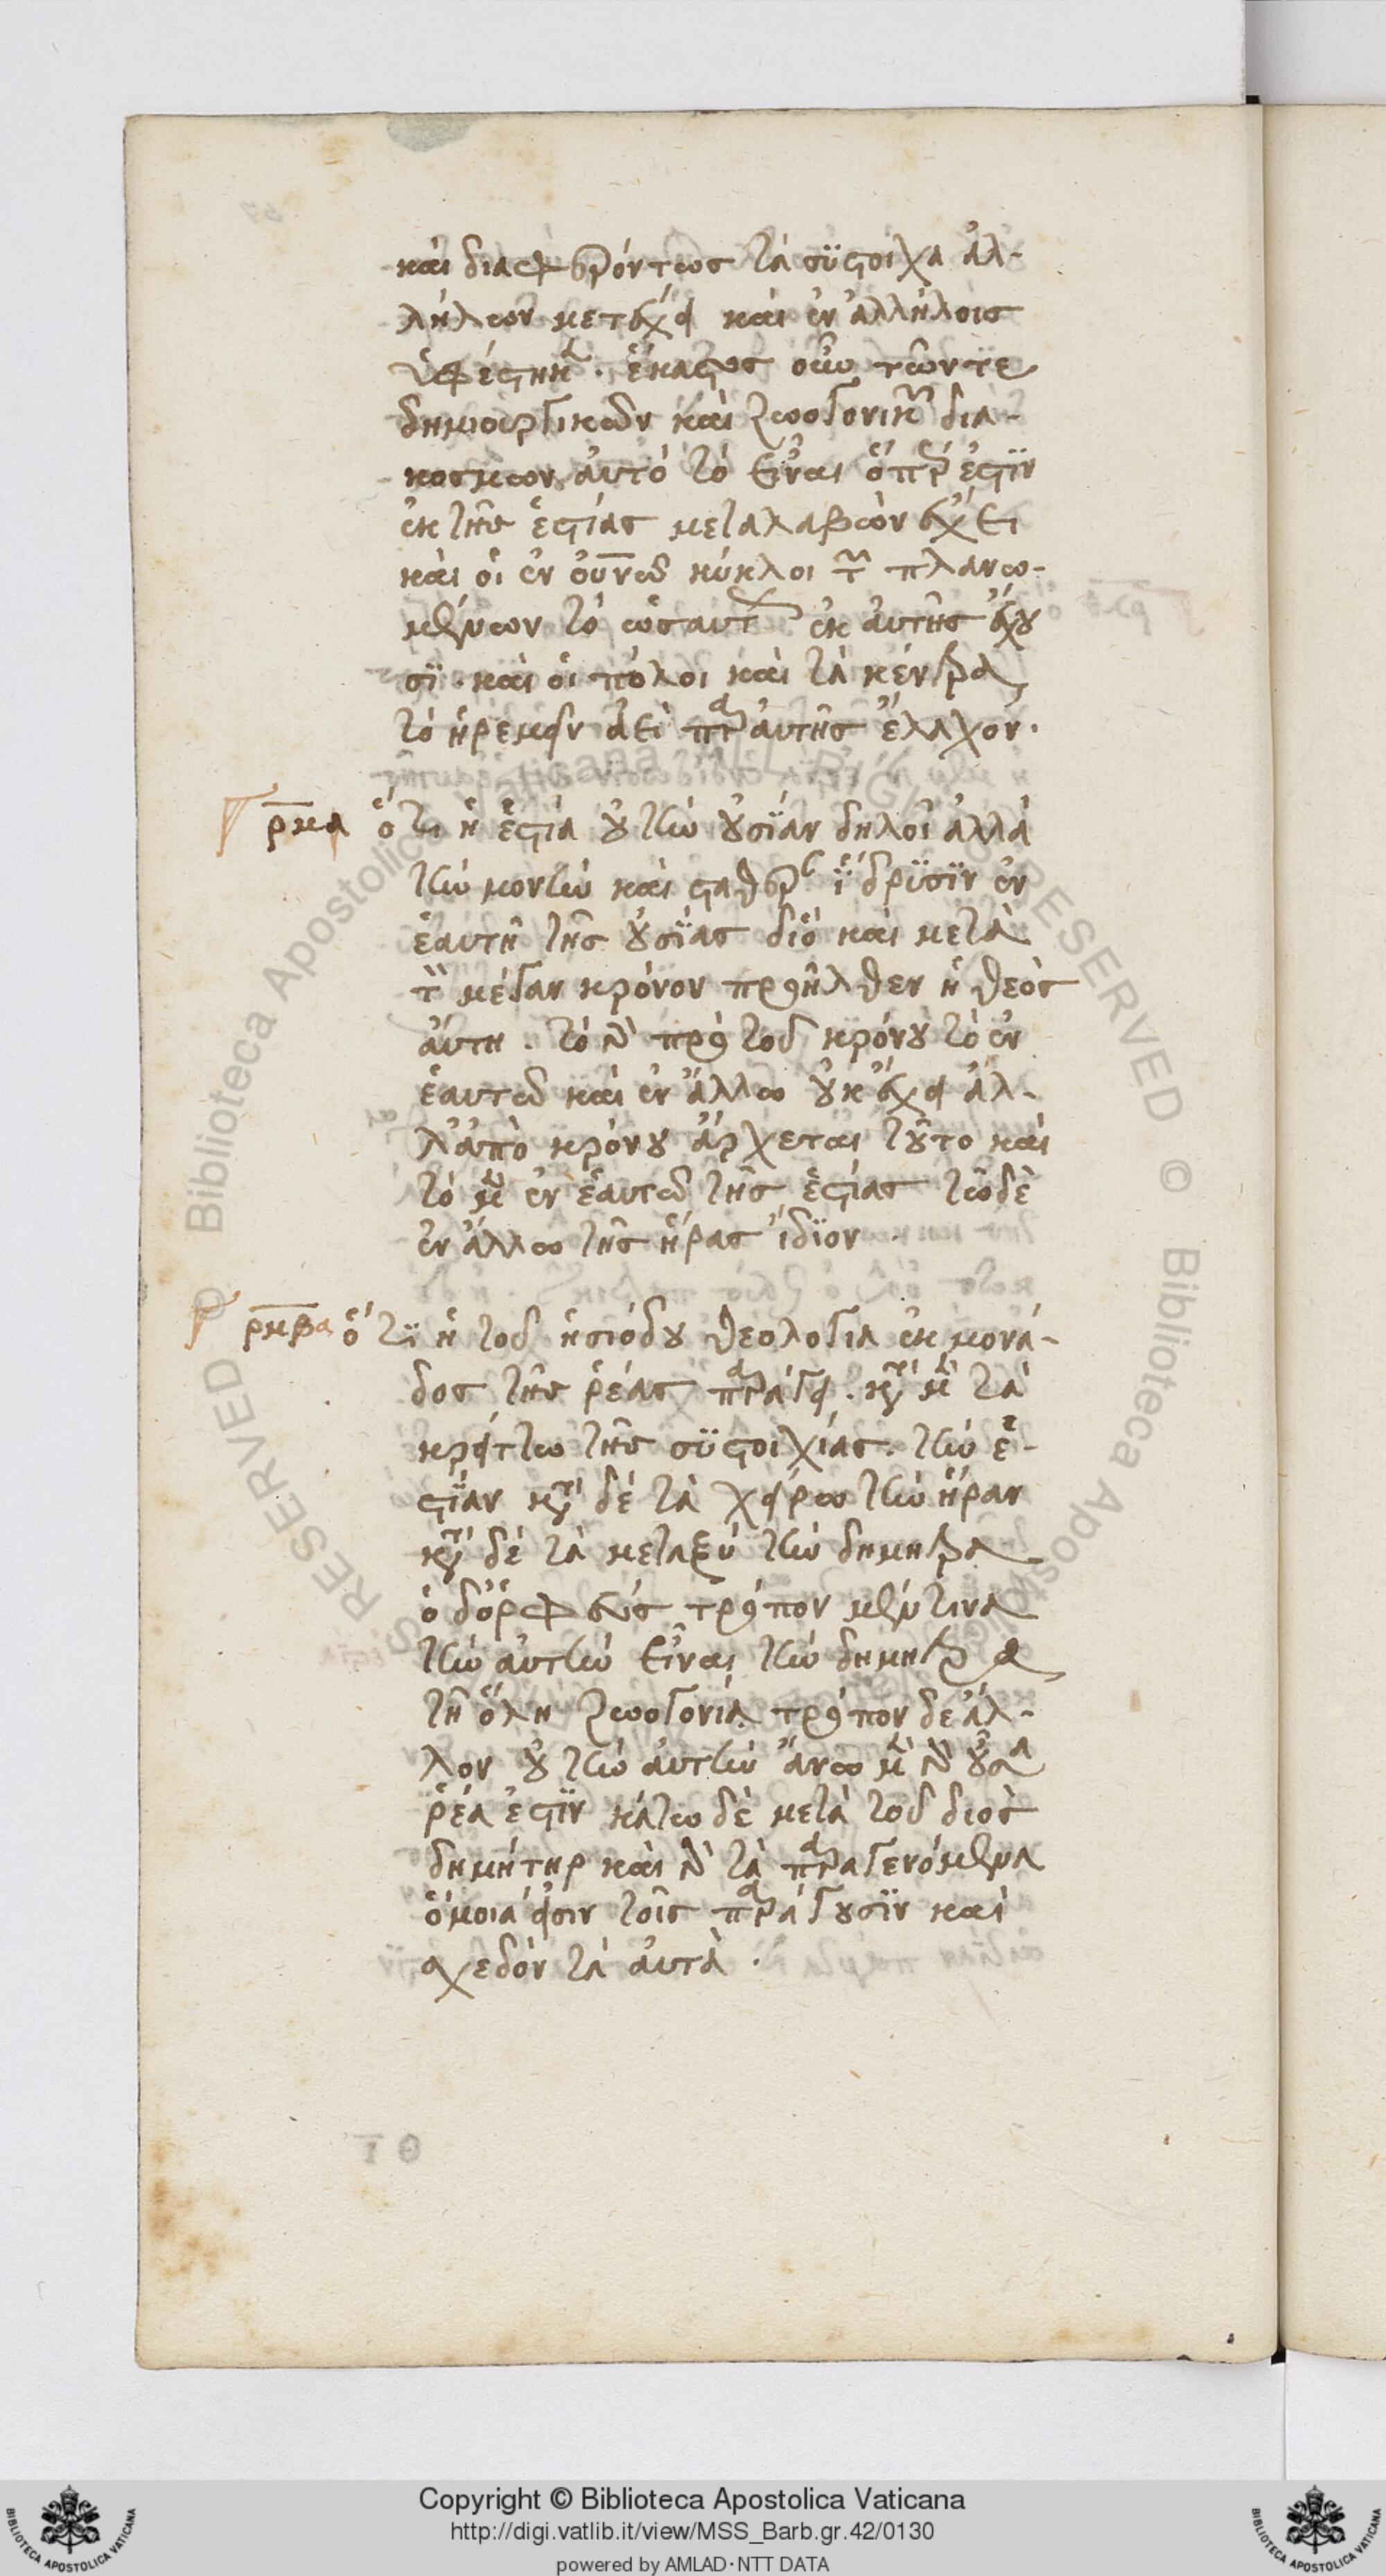 καὶ διαφερόντως τὰ σύστοιχα ἀλ-
λήλων μετέχει καὶ ἐν ἀλλήλοις
ὑφέστηκε. ἕκαστος οὖν τῶν τε
δημιουργικῶν καὶ ζωογονικῶν δια-
κοσμων αὐτὸ τὸ εἶναι ὅπερ ἐστὶν
ἐκ τῆς ἑστίας μεταλαβὼν ἔχει
καὶ οἱ ἐν οὐνῶ κύκλοι τῶν πλανω-
μένων τὸ ὡσαύτως ἐκ αὐτῆς ἔχου
σι. καὶ οἱ πόλοι καὶ τὰ κέντρα
τὸ ἠρεμεῖν ἀεὶ παρ αὐτῆς ἔλαχον.
ρμα ὅτι ἡ ἑστία οὐ τὴν οὐσίαν δηλοῖ ἀλλὰ
τὴν μονὴν καὶ σταθερὰν ἵδρυσιν ἐν
ἑαυτῆ τῆς οὐσίας διὸ καὶ μετὰ
τὸν μέγαν κρόνον προῆλθεν ἡ θεὸς
αὕτη. τὰ γὰρ πρὸ τοῦ κρόνου τὸ ἐν
ἑαυτῶ καὶ ἐν ἄλλω οὐκ ἔχει ἀλ-
λ᾽ ἀπὸ κρόνου ἄρχεται τοῦτο καὶ
τὸ μὲν ἐν ἑαυτῶ τῆς ἑστίας τὸ δὲ
ἐν ἄλλω τῆς ἥρας ἴδιον
ρμβ ὅτι ἡ τοῦ ἡσιόδου θεολογία ἐκ μονά-
δος τῆς ῥέας παράγει. κατὰ μὲν τὰ
κρείττω τῆς συστοιχίας. τὴν ἑ-
στίαν κατὰ δὲ τὰ χείρω τὴν ἥραν
κατὰ δὲ τὰ μεταξὺ τὴν δήμητρα
ὁ δ᾽ ὀρφεὺς τρόπον μέν τινα
τὴν αὐτὴν εἶναι τὴν δήμητρα
τῆ ὅλη ζωογονία τρόπον δὲ ἄλ-
λον οὐ τὴν αὐτὴν ἄνω μὲν γὰρ οὖσα
ῥέα ἐστὶν κάτω δὲ μετὰ τοῦ διὸς
δημήτηρ καὶ γὰρ τὰ παραγενόμενα
ὅμοιά εἰσιν τοῖς παράγουσιν καὶ
σχεδὸν τὰ αὐτά.
Copyright © Biblioteca Apostolica Vaticana
http://digi.vatlib.it/view/MSS_Barb.gr.42/0130
powered by AMLAD·NTT DATA